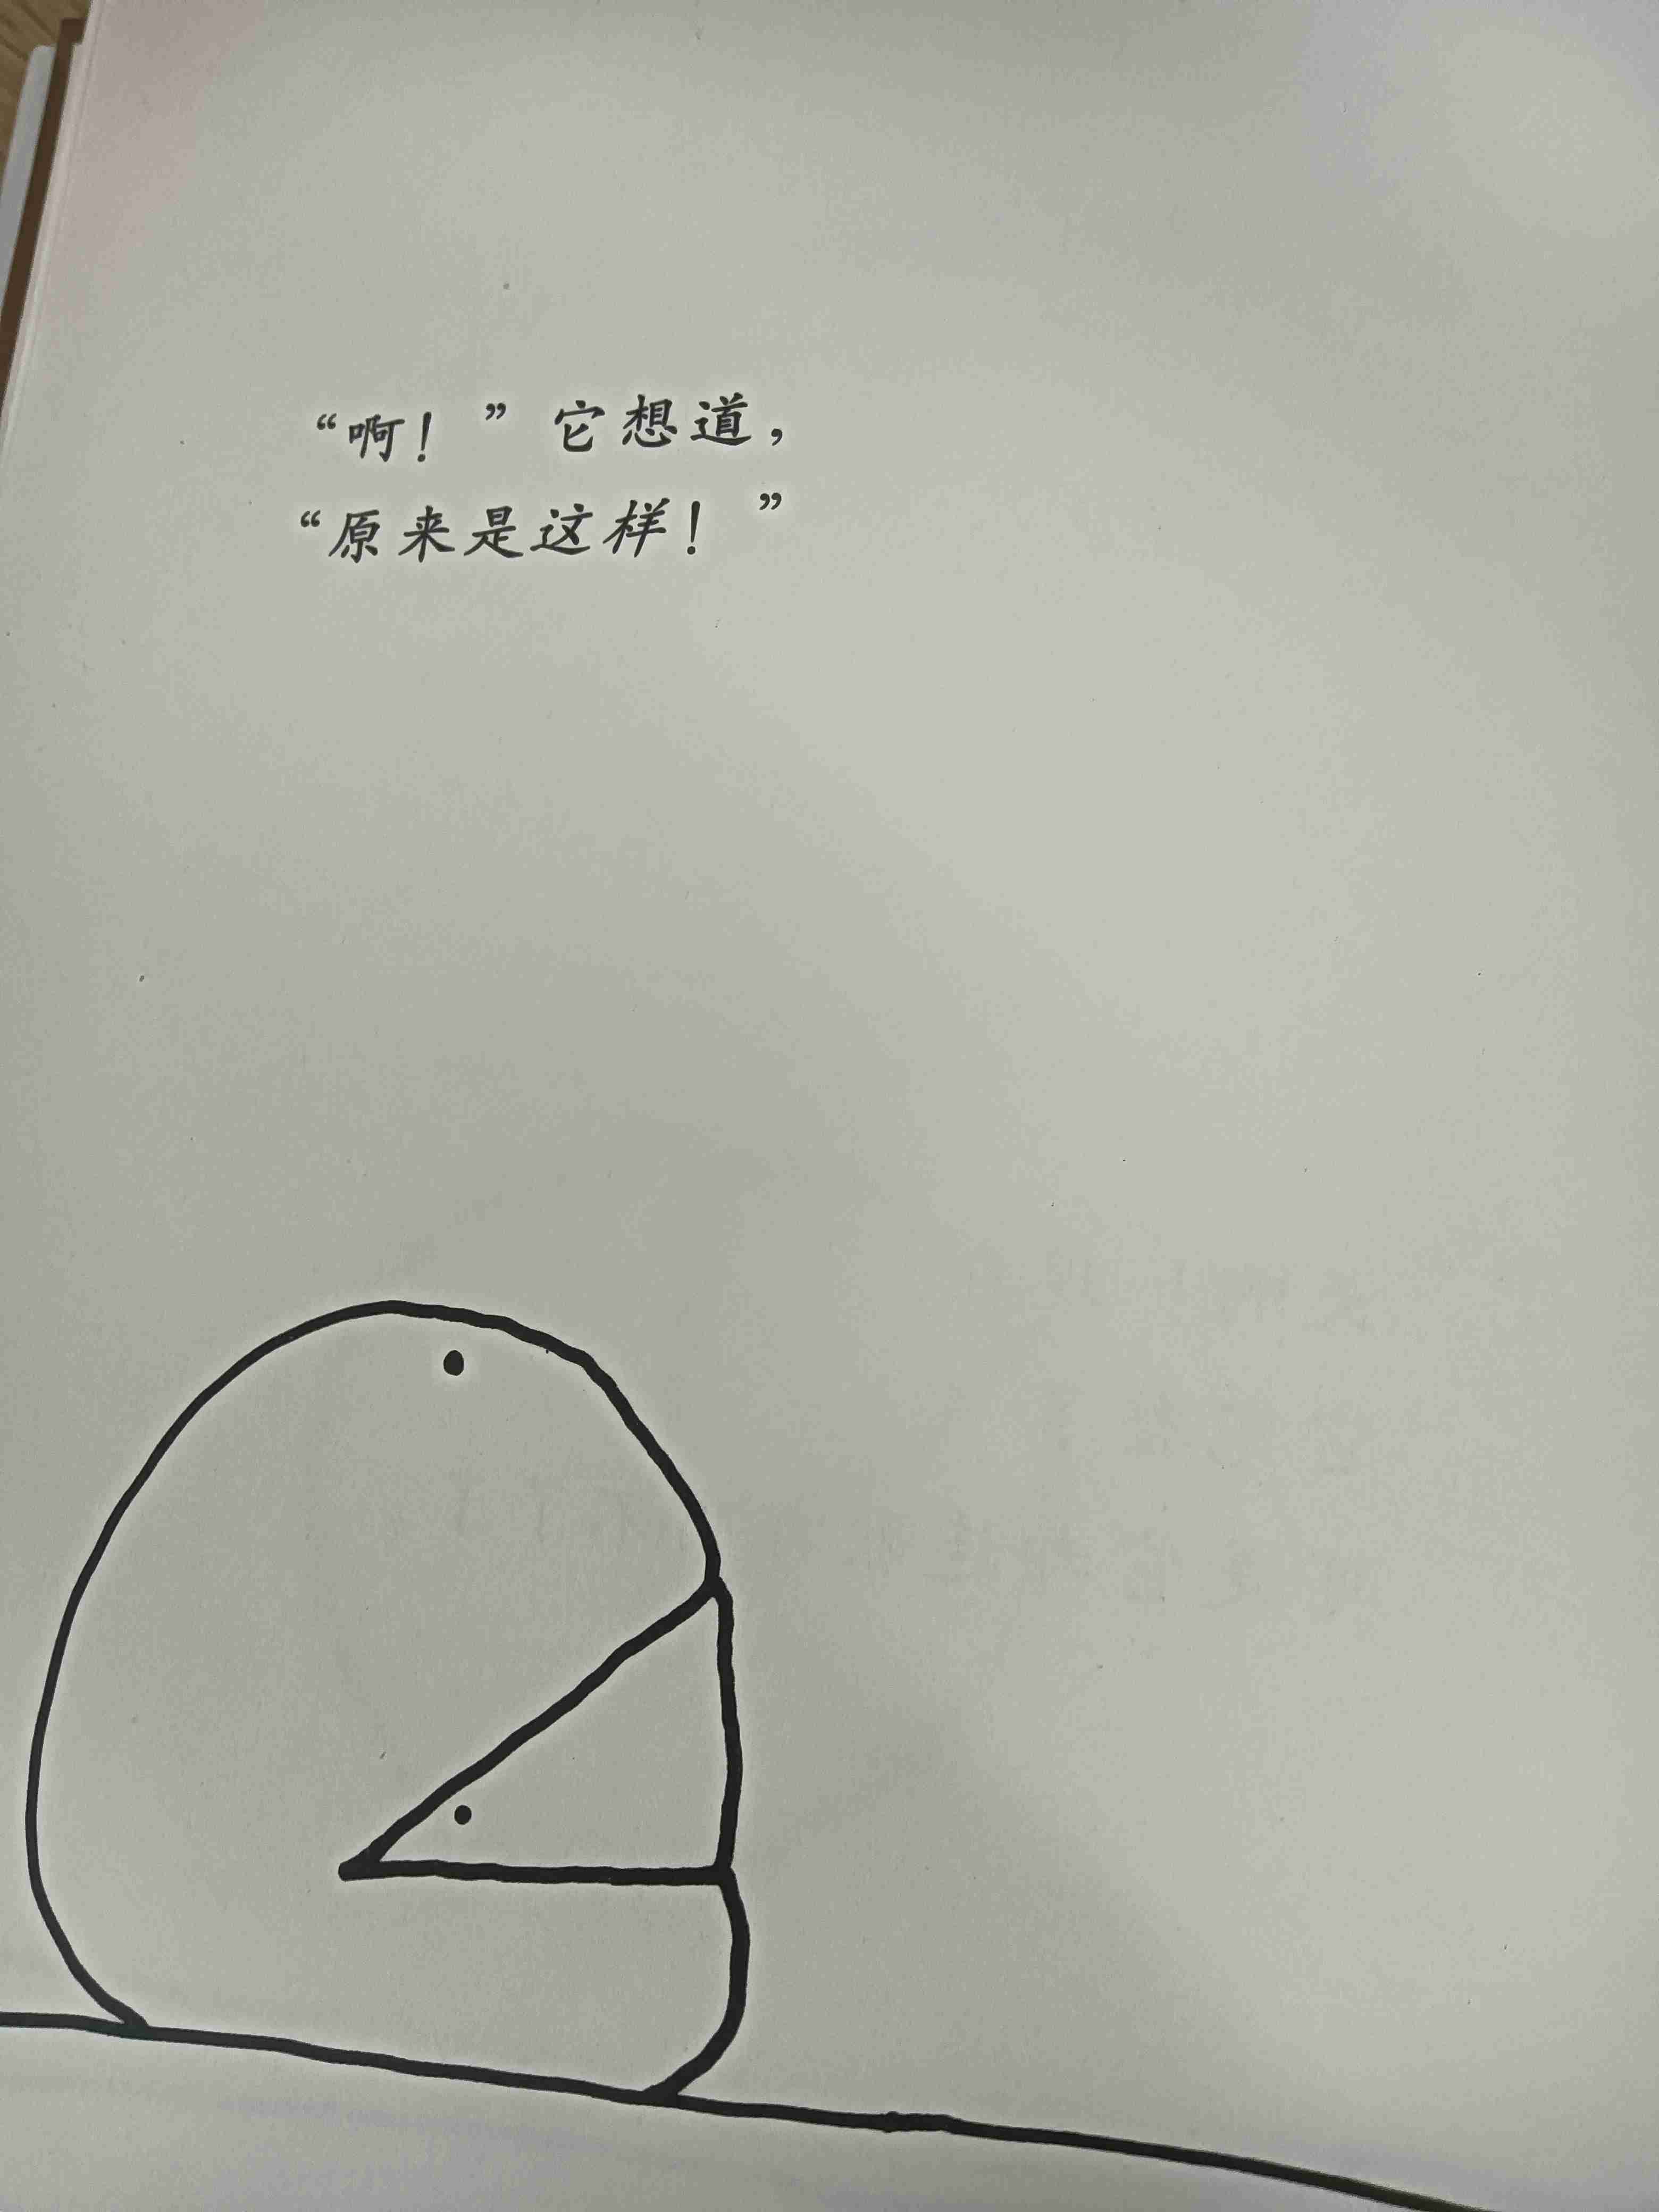 “啊！”它想道，
“原来是这样！”